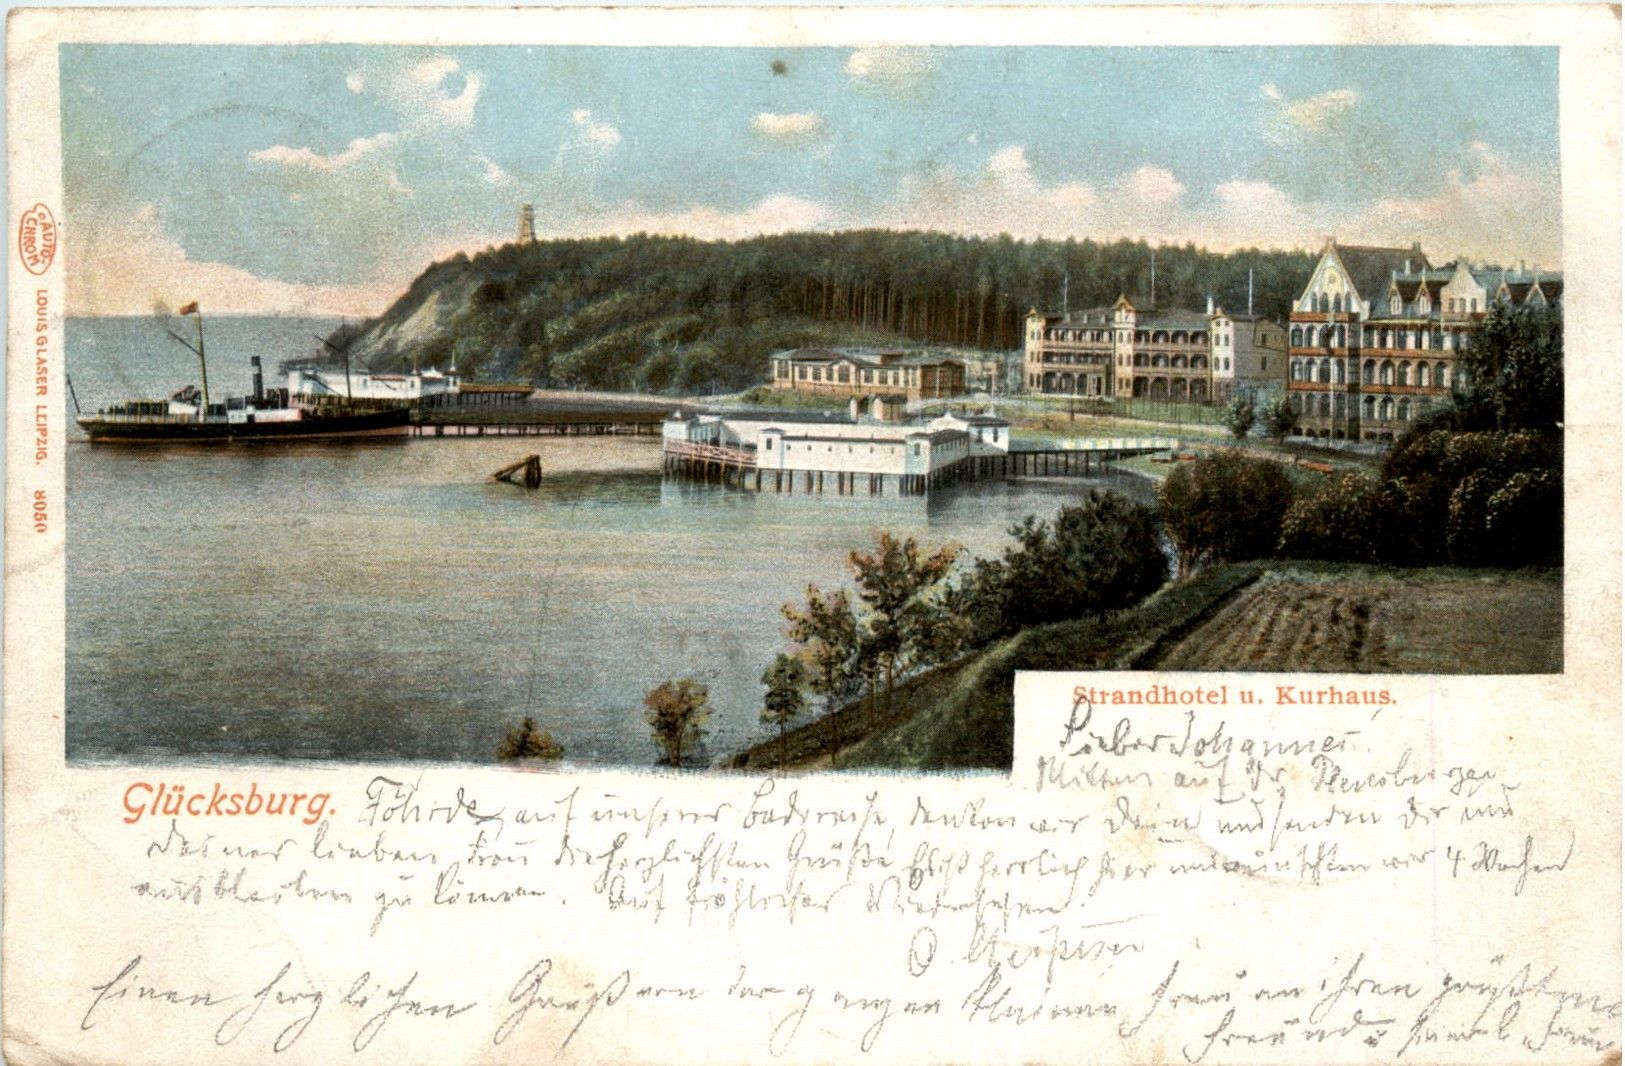 AUTO-
CHROM
LOUIS GLASER LEIPZIG. 8050
Strandhotel u. Kurhaus.
Lieber Johannes!
Mitten auf der Flensburger
Glücksburg.
Föhrde, auf unserer Badereise, denken wir Dein und senden Dir und
Deiner lieben Frau die herzlichsten Grüße. Es ist herrlich hier und wünschten wir 4 Wochen
ausbleiben zu können. Auf fröhliches Wiedersehen.
O.
Einen herzlichen Gruß von der ganzen kleinen Frau an ihren größten
Freund u seine l. Frau